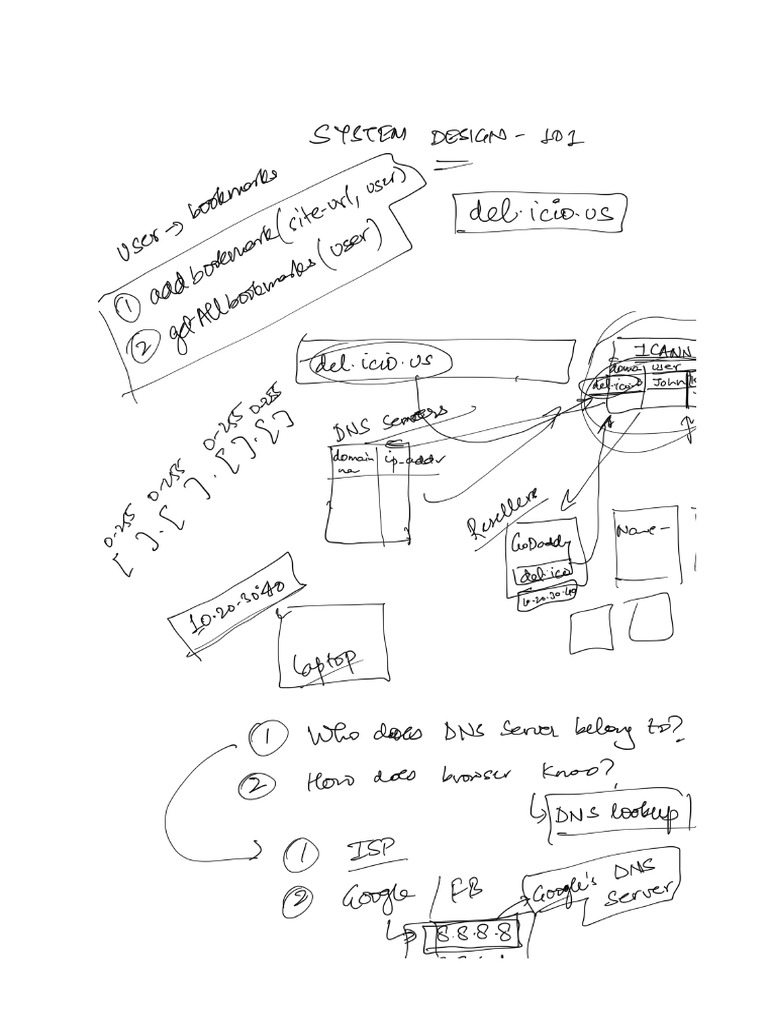 SYSTEM DESIGN - 101
del.icio.us
user → bookmarks
① addbookmark(site-url, user)
② getAllbookmarks(user)
del.icio.us
ICANN
domai user
del.icio John
DNS servers
domain ip-addr
na
0-255 0-255 0-255 0-255
[ ] . [ ] . [ ] . [ ]
Resellers
GoDaddy
del.icio
10.20.30.40
Name-
10.20.30.40
Laptop
① Who does DNS server belong to?
② How does browser know?
DNS lookup
① ISP
② Google / FB
Google's DNS
server
8.8.8.8